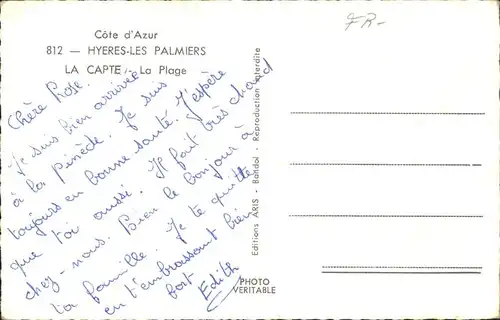 FR-
Côte d'Azur
812 — HYERES-LES PALMIERS
LA CAPTE - La Plage
Chère Rose.
Je suis bien arrivée
à la pinède. Je suis
toujours en bonne santé. J'espère
que toi aussi. Il fait très chaud
chez-nous. Bien le bonjour à
ta famille. Je te quitte
en t'embrassant bien
fort
Edith
Editions ARIS - Bandol - Reproduction interdite
PHOTO
VERITABLE